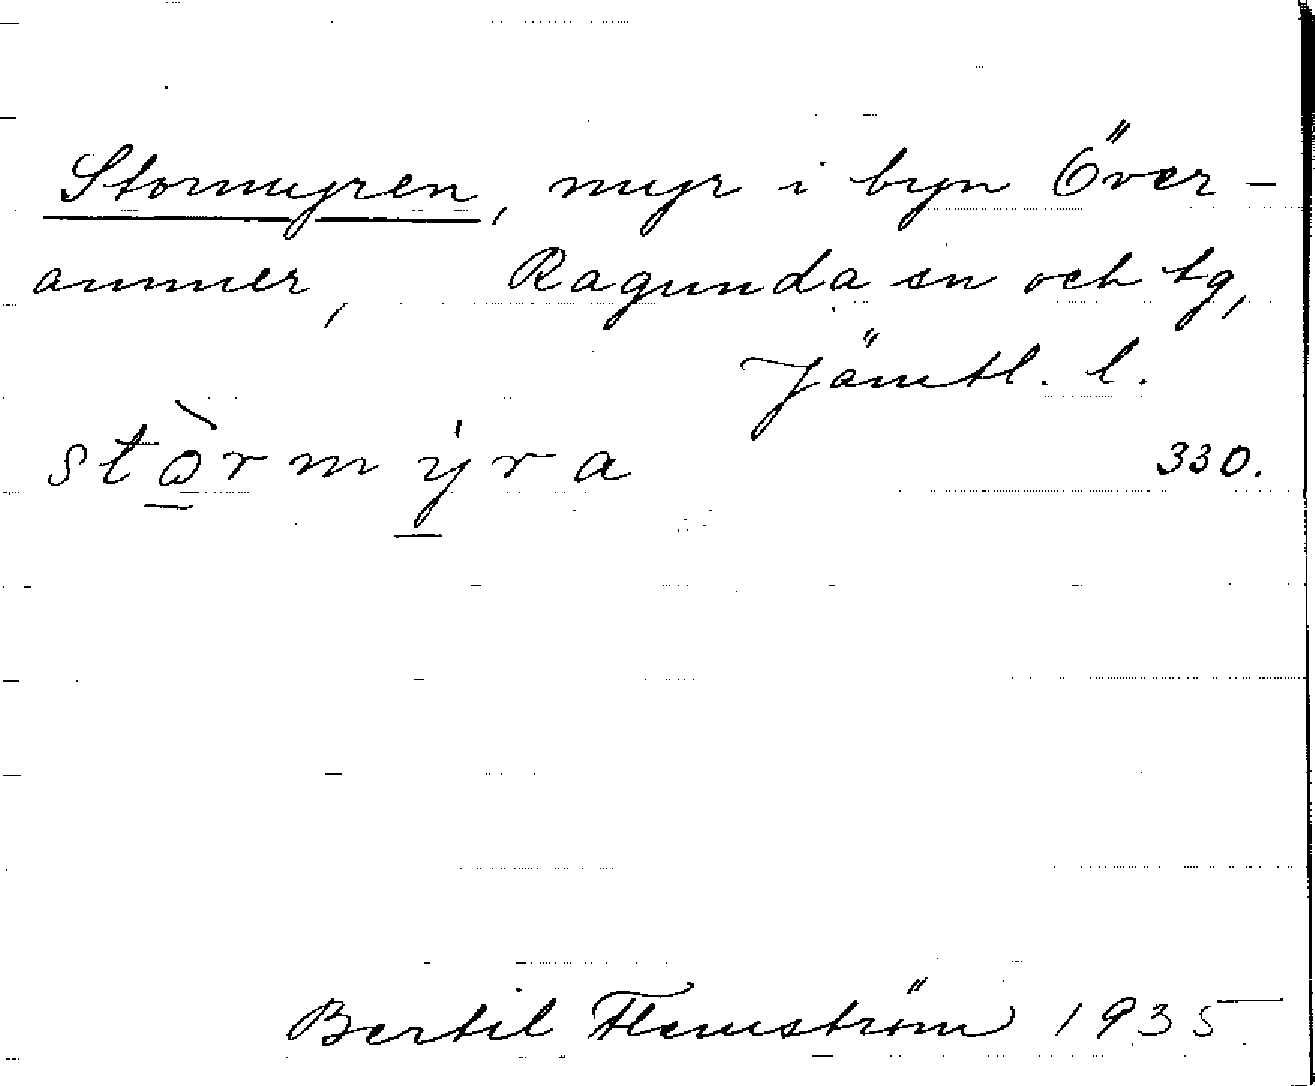 Stormyren, myr i byn Över-
ammer, Ragunda sn och tg,
Jämtl. l.
stòrmýra 330.
Bertil Flemström 1935